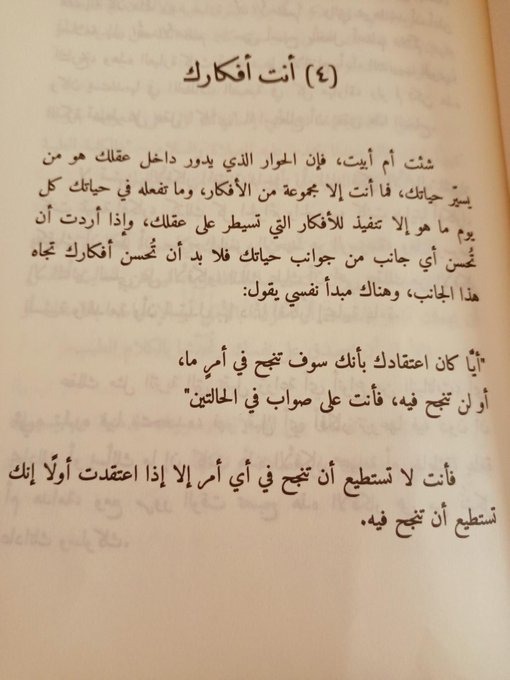 (٤) أنت أفكارك
شئت أم أبيت، فإن الحوار الذي يدور داخل عقلك هو من
يسيّر حياتك، فما أنت إلا مجموعة من الأفكار، وما تفعله في حياتك كل
يوم ما هو إلا تنفيذ للأفكار التي تسيطر على عقلك، وإذا أردت أن
تُحسن أي جانب من جوانب حياتك فلا بد أن تُحسن أفكارك تجاه
هذا الجانب، وهناك مبدأ نفسي يقول:
"أيًّا كان اعتقادك بأنك سوف تنجح في أمرٍ ما،
أو لن تنجح فيه، فأنت على صواب في الحالتين"
فأنت لا تستطيع أن تنجح في أي أمر إلا إذا اعتقدت أولًا إنك
تستطيع أن تنجح فيه.